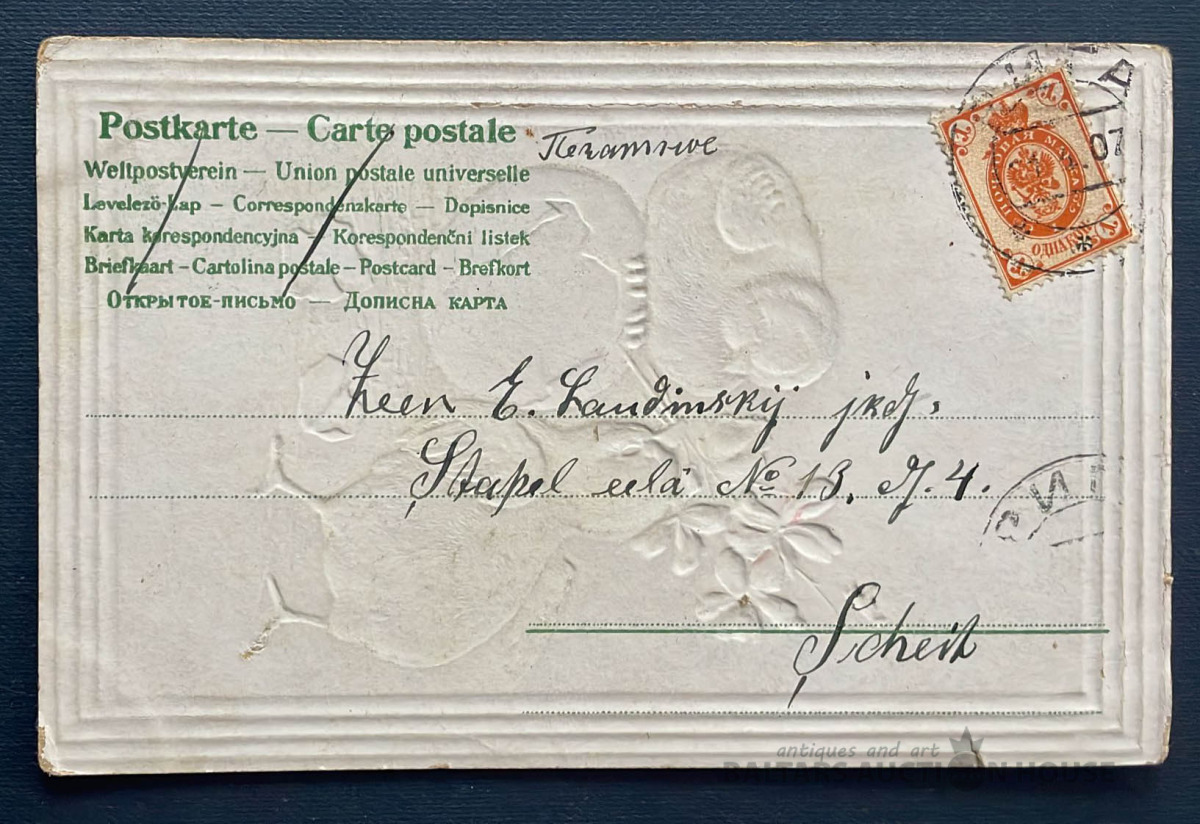 Postkarte — Carte postale
Печатное
Weltpostverein — Union postale universelle
Levelező-Lap — Correspondenzkarte — Dopisnice
Karta korespondencyjna — Korespondenčni listek
Briefkaart — Cartolina postale — Postcard — Brefkort
Открытое-письмо — Дописна карта
07
1
1
ОДНА КОП.
E. Landinskij
Stapel eelâ № 13,
4.
Scheit
РИГ
antiques and art
BALTARS AUCTION HOUSE